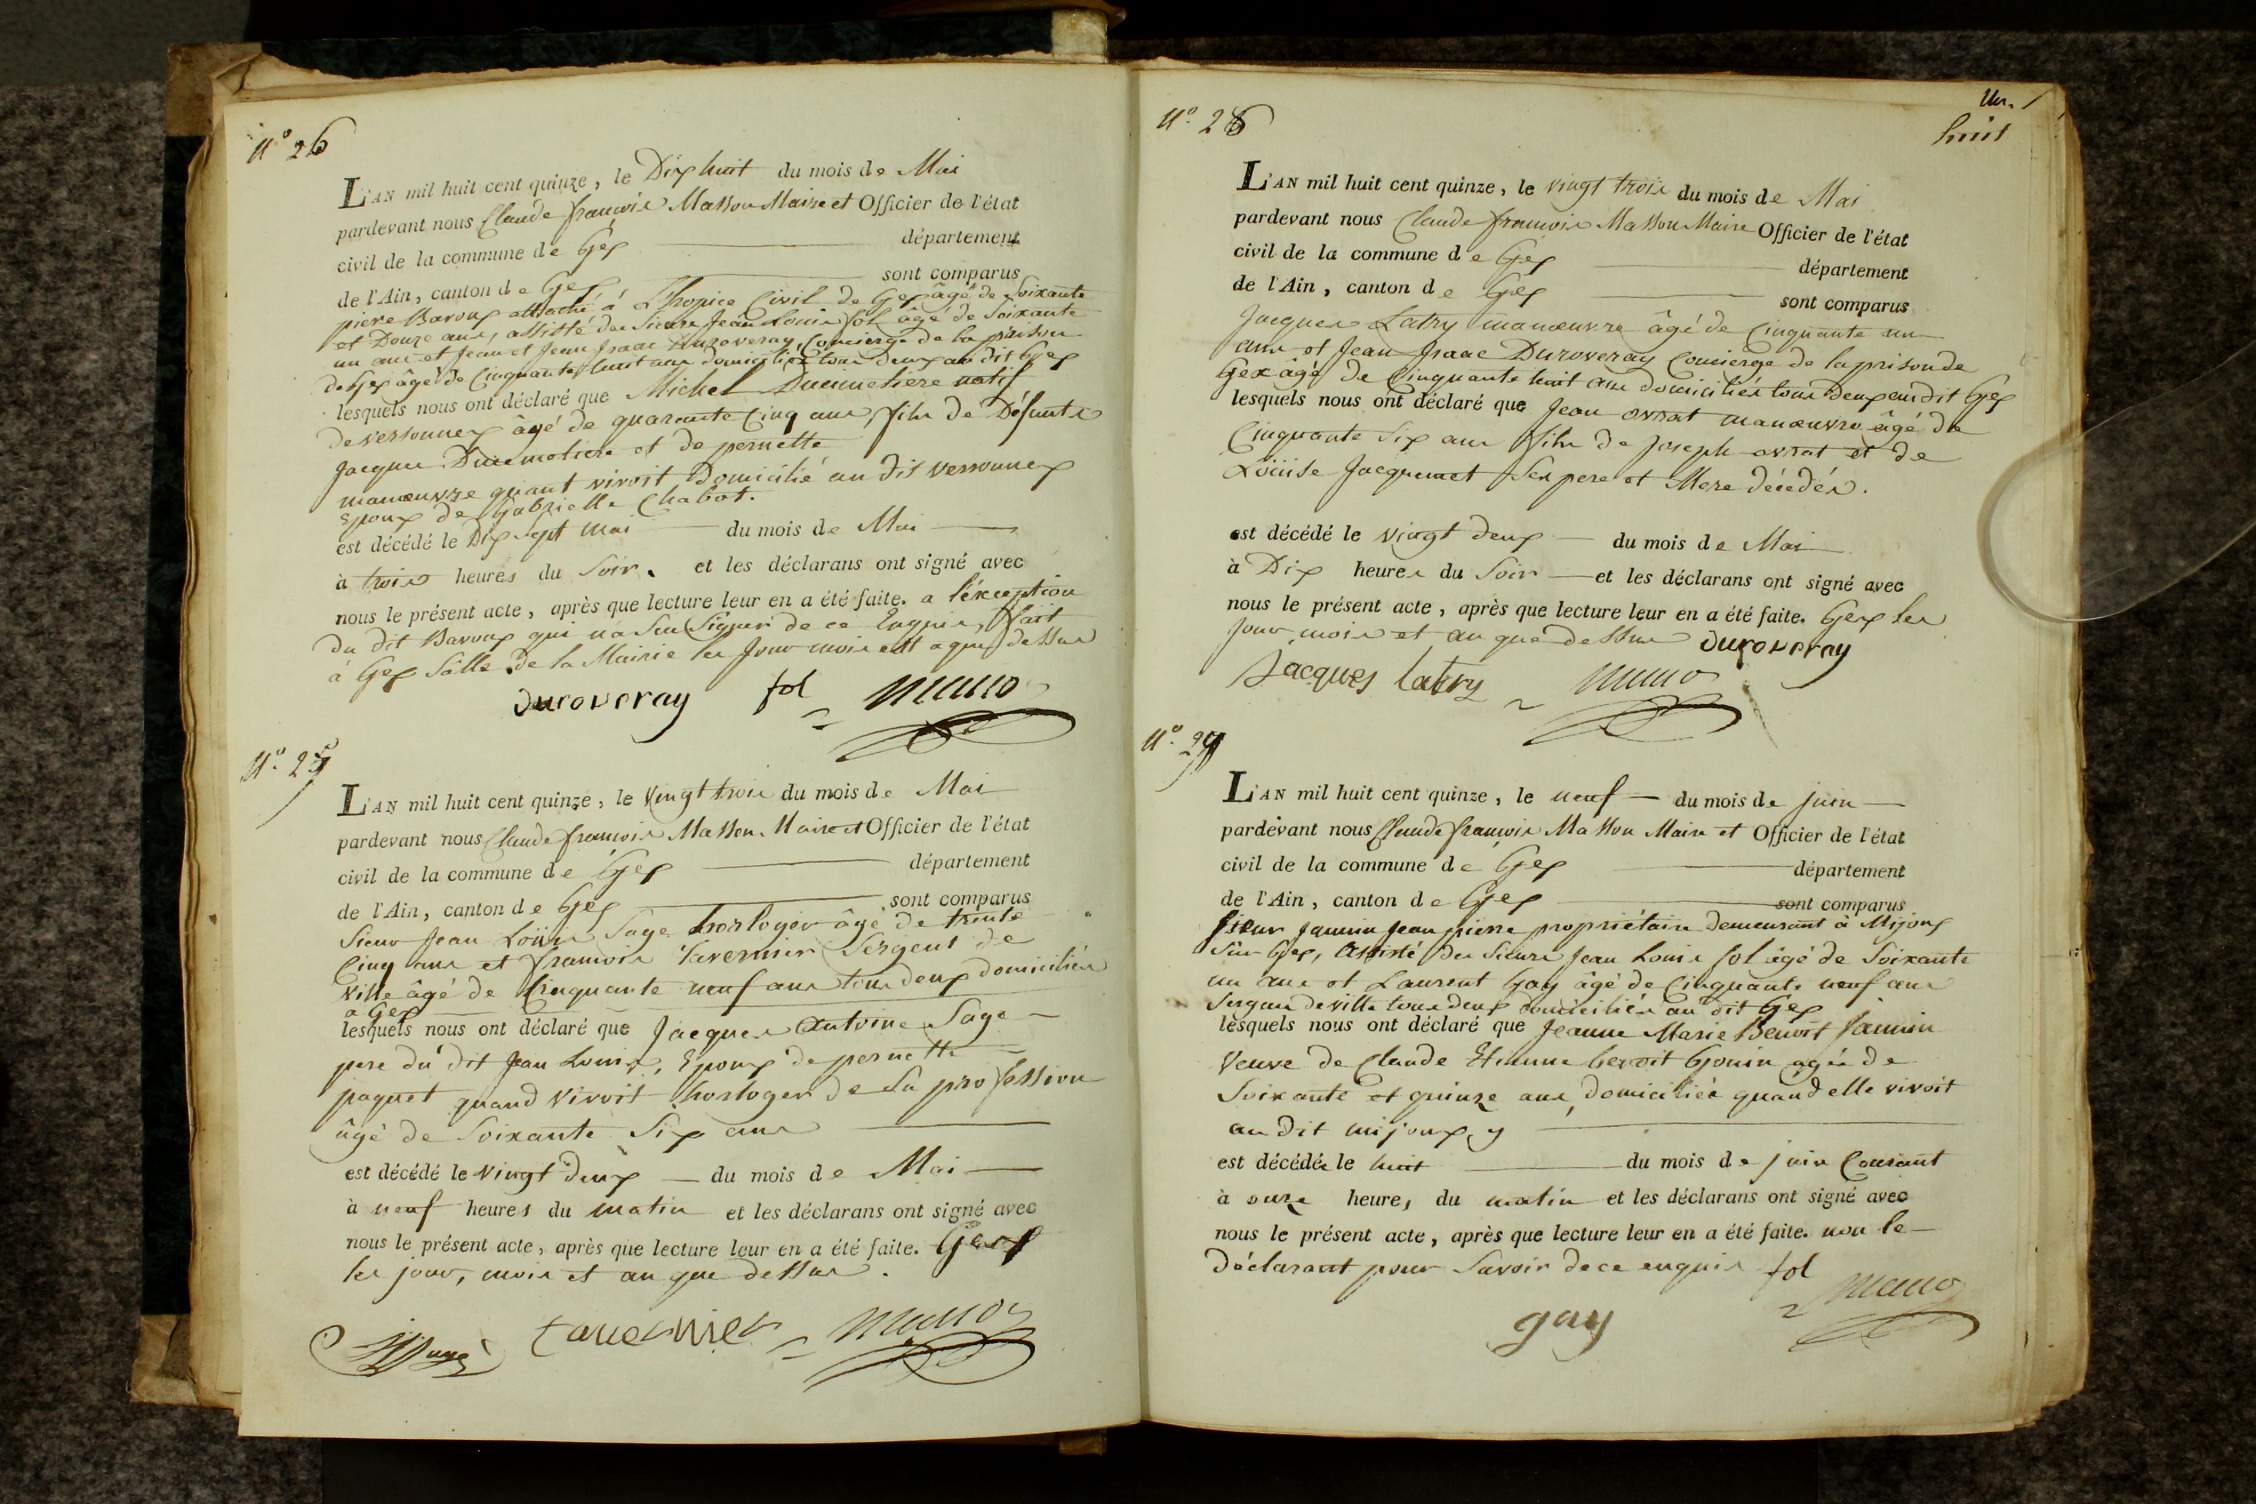 N.° 26
L'AN mil huit cent quinze, le Dix huit du mois de Mai
pardevant nous Claude françois Masson Maire et Officier de l'état
civil de la commune de Gex département
de l'Ain, canton de Gex sont comparus
piere Baroux attaché à L'hospice Civil de Gex âgé de Soixante
et Douze ans, assisté des Sieurs Jean Louis fol âgé de Soixante
un ans et Jean et Jean Isaac Duroveray, Concierge de la prison
de Gex âgé de Cinquante huit ans domiciliés tous deux au dit Gex
lesquels nous ont déclaré que Michel Ducimetiere natif
de versonnex âgé de quarante Cinq ans, fils de Défunts
Jacques Ducimetiere et de pernette
manœuvre quant vivoit Domicilié au dit versonnex
Epoux de Gabrielle Chabot.
est décédé le Dix sept mai du mois de Mai
à trois heures du Soir. et les déclarans ont signé avec
nous le présent acte, après que lecture leur en a été faite. a l'éxception
du dit Baroux qui n'a Seu Signer de ce Enquis, fait
à Gex Salle de la Mairie les Jour mois et a que dessus
Duroveray fol
N.° 27
L'AN mil huit cent quinze, le Vingt trois du mois de Mai
pardevant nous Claude françois Masson Maire et Officier de l'état
civil de la commune de Gex département
de l'Ain, canton de Gex sont comparus
Sieur Jean Loüis Sage horloger âgé de trente
Cinq ans et françois Tavernier Sergent de
Ville âgé de Cinquante neuf ans tous deux domiciliés
a Gex
lesquels nous ont déclaré que Jacques Antoine Sage
pere du dit Jean Louis, Epoux de pernette
paquet quand Vivoit horloger de Sa profession
âgé de Soixante Six ans
est décédé le vingt deux du mois de Mai
à neuf heures du matin et les déclarans ont signé avec
nous le présent acte, après que lecture leur en a été faite. Gex
les jour, mois et an que dessus.
tauernier
huit
N.° 28
L'AN mil huit cent quinze, le vingt trois du mois de Mai
pardevant nous Claude françois Masson Maire Officier de l'état
civil de la commune de Gex département
de l'Ain, canton de Gex sont comparus
Jacques Latry manœuvre âgé de Cinquante un
ans et Jean Isaac Duroveray Concierge de la prison de
Gex âgé de Cinquante huit ans domiciliés tous deux au dit Gex
lesquels nous ont déclaré que Jean ovrat manœuvre âgé de
Cinquante Six ans fils de Joseph ovrat et de
Loüise Jacquenet Ses pere et Mere décédés.
est décédé le vingt deux du mois de Mai
à Dix heures du Soir et les déclarans ont signé avec
nous le présent acte, après que lecture leur en a été faite. Gex les
jour, mois et an que dessus Duroveray
Jacques latry
N.° 29
L'AN mil huit cent quinze, le neuf du mois de juin
pardevant nous Claude françois Masson Maire et Officier de l'état
civil de la commune de Gex département
de l'Ain, canton de Gex sont comparus
Sieur Janin Jean pierre propriétaire demeurant à Mijoux
Sur Gex, assisté des Sieurs Jean Louis fol âgé de Soixante
un ans et Laurent Gay âgé de Cinquante neuf ans
Sergan de ville tous deux domiciliés au dit Gex
lesquels nous ont déclaré que Jeanne Marie Benoit Jannin
Veuve de Claude Etienne benoit Gonin agée de
Soixante et quinze ans, domiciliée quand elle vivoit
au Dit mijoux
est décédée le huit du mois de juin Courant
à onze heures du matin et les déclarans ont signé avec
nous le présent acte, après que lecture leur en a été faite. non le
Déclarant pour Savoir de ce enquis fol
gay